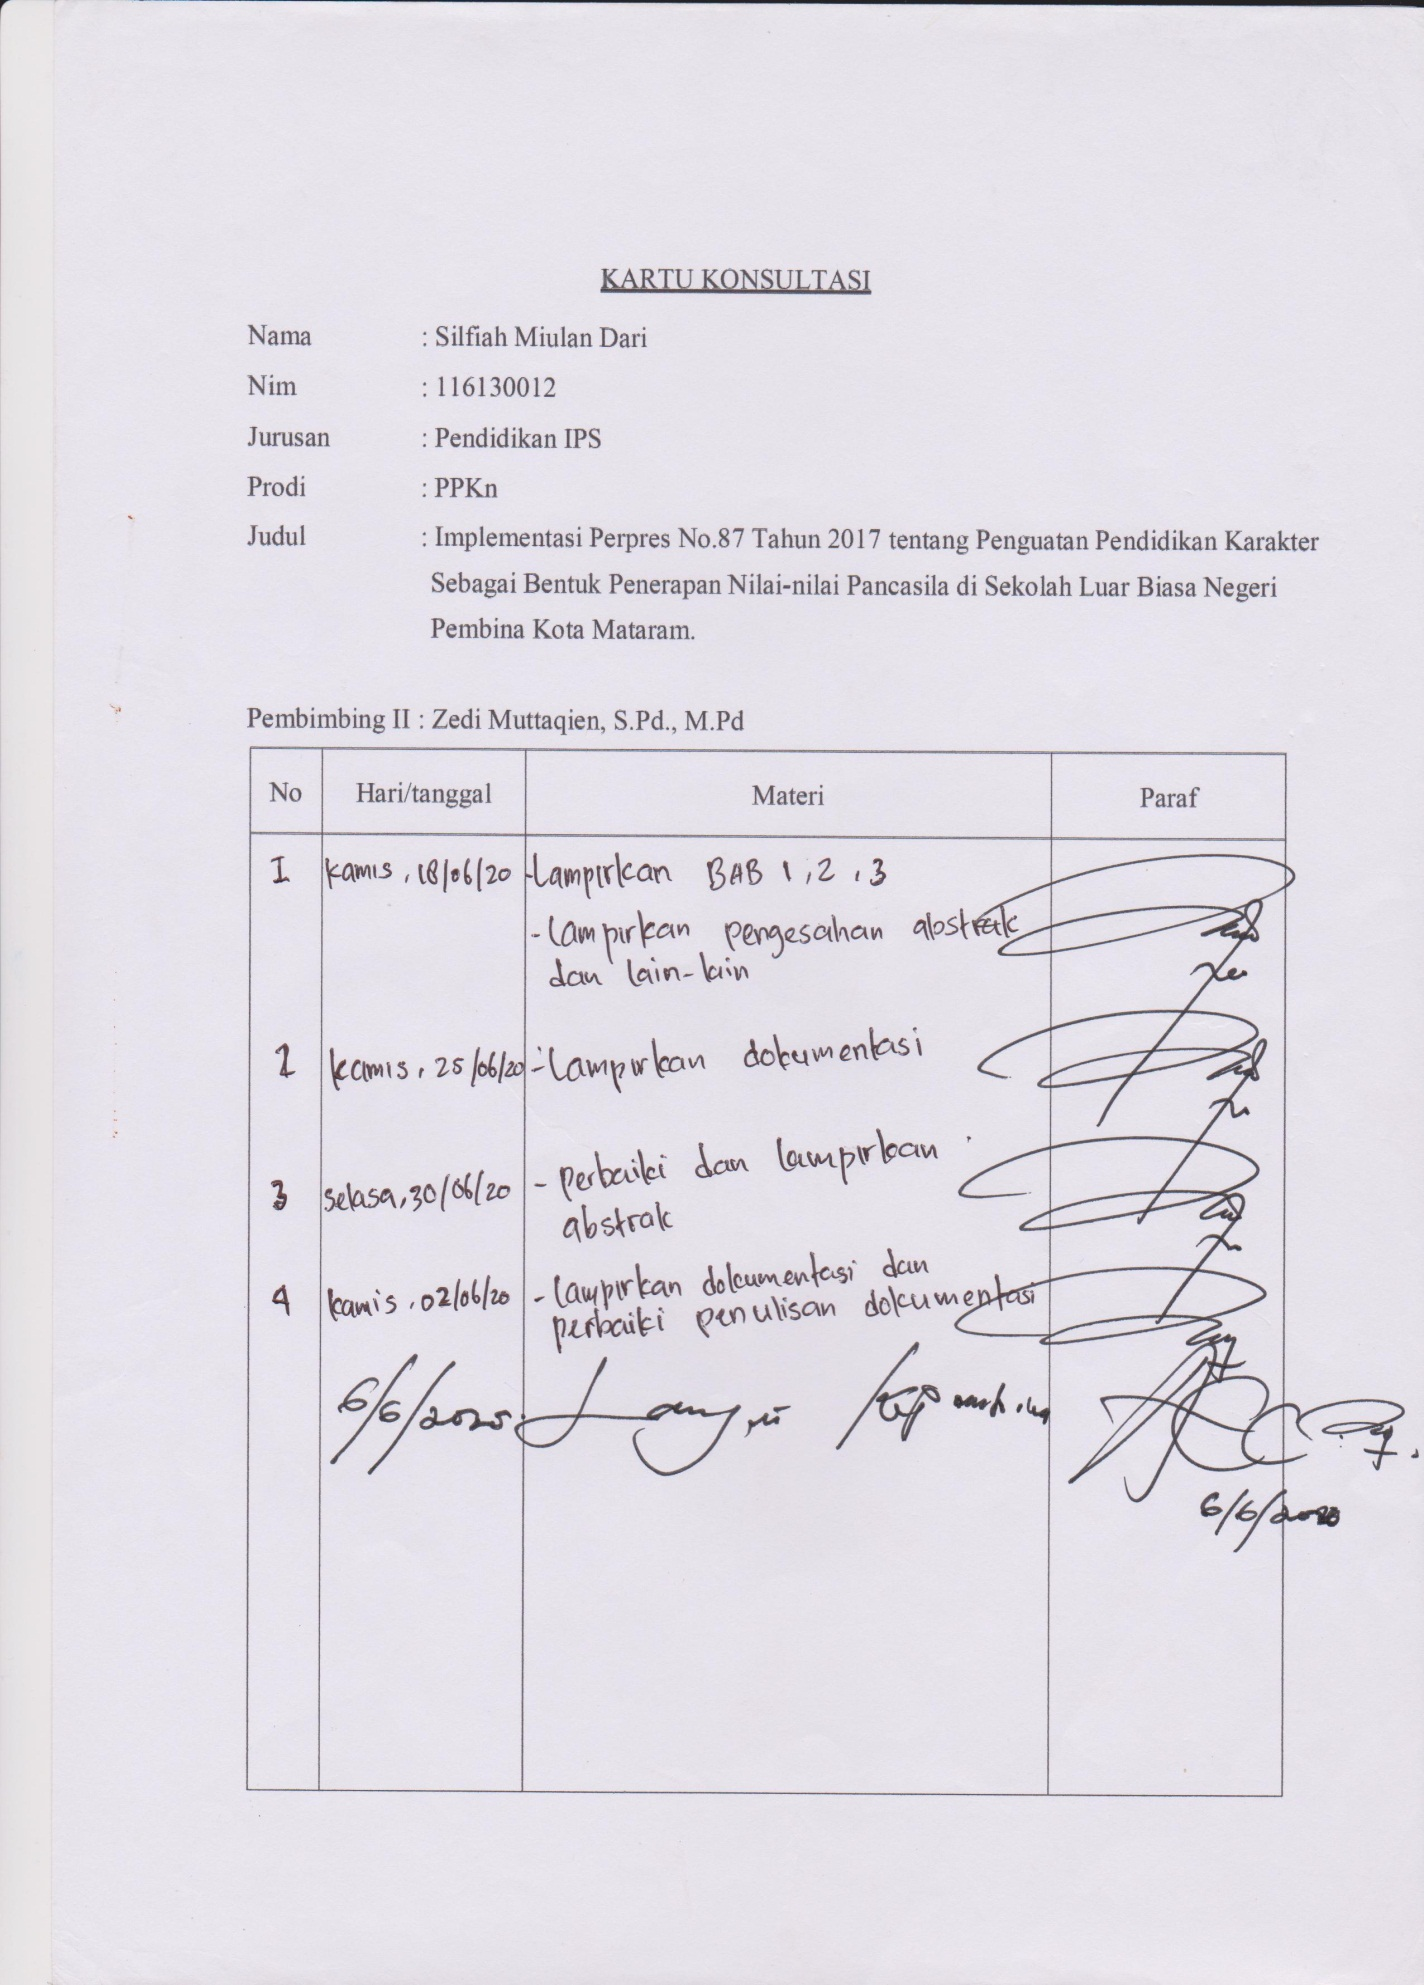 KARTU KONSULTASI
Nama : Silfiah Miulan Dari
Nim : 116130012
Jurusan : Pendidikan IPS
Prodi : PPKn
Judul : Implementasi Perpres No.87 Tahun 2017 tentang Penguatan Pendidikan Karakter
Sebagai Bentuk Penerapan Nilai-nilai Pancasila di Sekolah Luar Biasa Negeri
Pembina Kota Mataram.
Pembimbing II : Zedi Muttaqien, S.Pd., M.Pd
No Hari/tanggal Materi Paraf
1 kamis, 18/06/20 -Lampirkan BAB 1, 2, 3
- Lampirkan pengesahan abstrak
dan lain-lain
2 kamis, 25/06/20 - Lampirkan dokumentasi
3 selasa, 30/06/20 - Perbaiki dan lampirkan
abstrak
4 kamis, 02/06/20 - Lampirkan dokumentasi dan
perbaiki penulisan dokumentasi
6/6/2020
6/6/2020